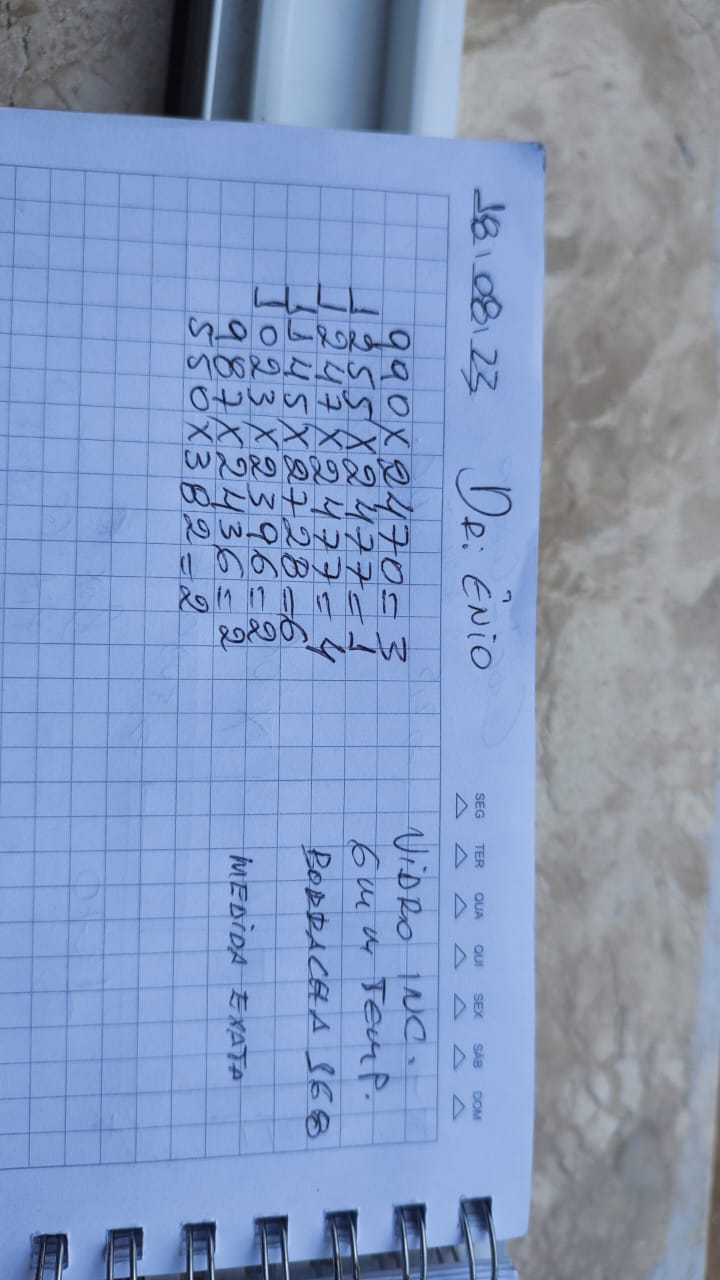 18.08.23 Dr. Ênio
SEG TER QUA QUI SEX SAB DOM
990 X 2470 = 3 VIDRO INC.
1255 X 2477 = 1 6mm Temp.
1247 X 2477 = 4 BORRACHA 168
1145 X 2728 = 6
1023 X 2396 = 2 MEDIDA EXATA
987 X 2436 = 2
550 X 382 = 2